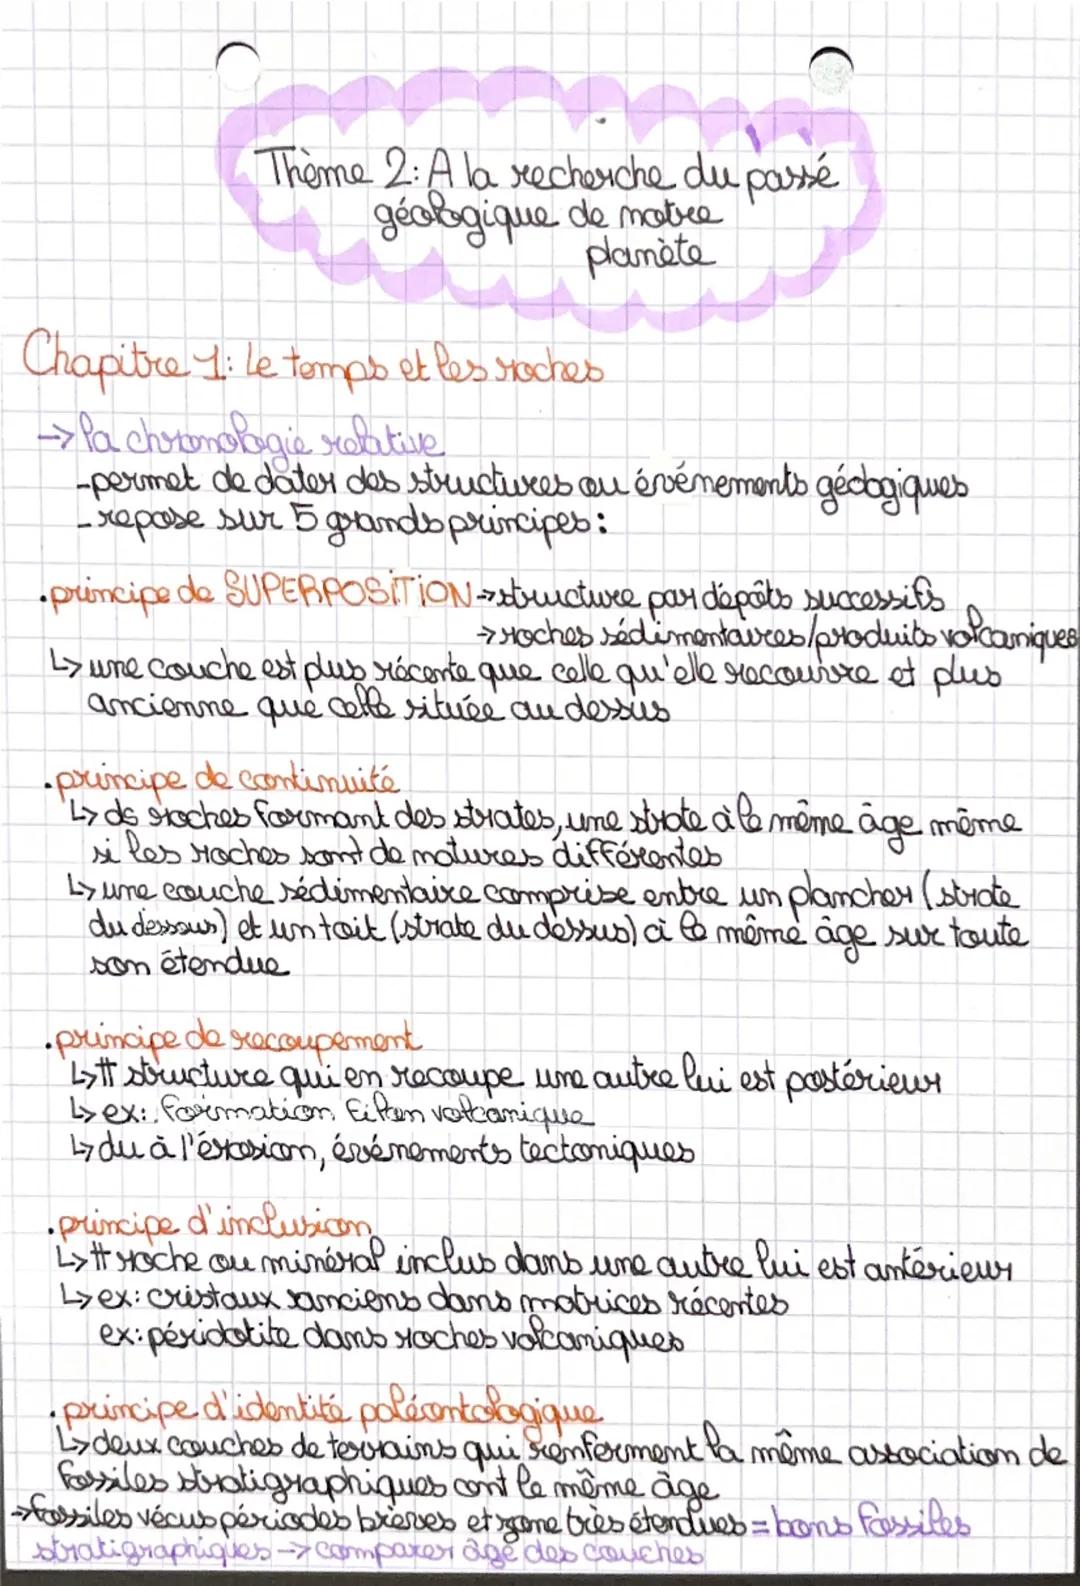 Thème 2: A la recherche du passé
géologique de notre
planète
Chapitre 1: Le temps et les roches
→ la chronologie relative
-permet de dater des structures ou événements géologiques
-repose sur 5 grands principes:
.principe de SUPERPOSITION → structure par dépôts successifs
→ roches sédimentaires/produits volcaniques
↳ une couche est plus récente que celle qu'elle recouvre et plus
ancienne que celle située au dessus
.principe de continuité
↳ ds roches formant des strates, une strate à le même âge même
si les roches sont de natures différentes
↳ une couche sédimentaire comprise entre un plancher (strate
du dessous) et un toit (strate du dessus) à le même âge sur toute
son étendue
.principe de recoupement
↳ tt structure qui en recoupe une autre lui est postérieur
↳ ex: formation filon volcanique
↳ du à l'érosion, événements tectoniques
.principe d'inclusion
↳ tt roche ou minéral inclus dans une autre lui est antérieur
↳ ex: cristaux anciens dans matrices récentes
ex: péridotite dans roches volcaniques
.principe d'identité paléontologique
↳ deux couches de terrains qui renferment la même association de
fossiles stratigraphiques ont le même âge
→ fossiles vécus périodes brèves et zone très étendues = bons fossiles
stratigraphiques → comparer âge des couches